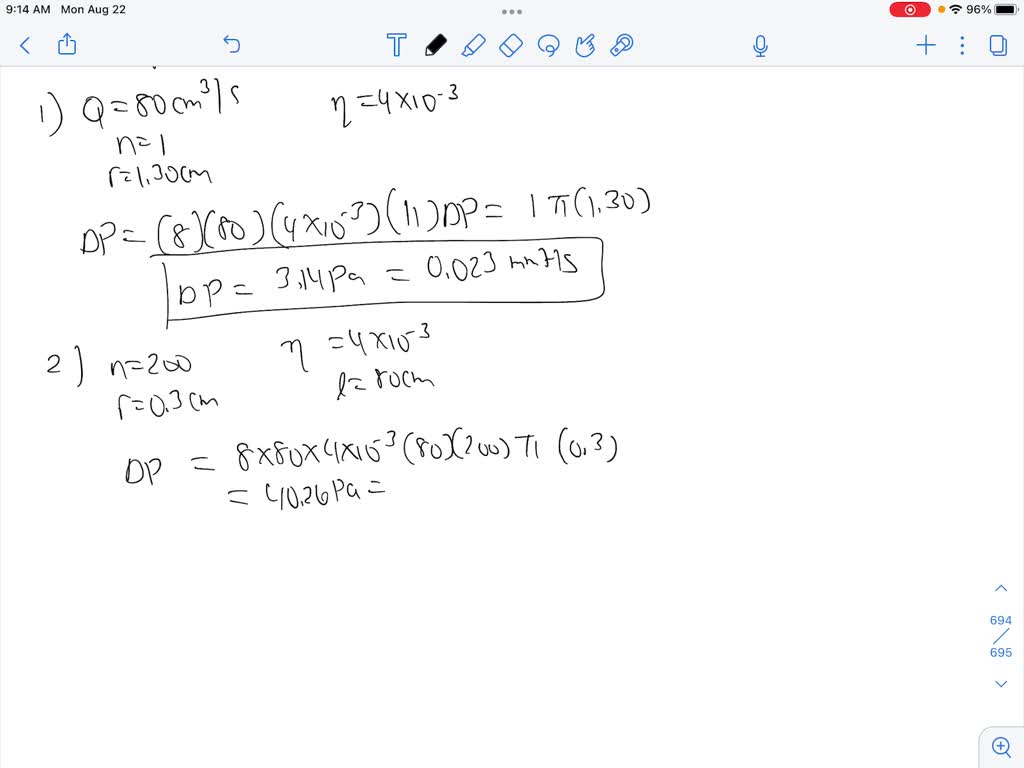 9:14 AM Mon Aug 22
96%
1) Q=80cm³/s η=4×10⁻³
n=1
r=1.30cm
DP=(8)(80)(4×10⁻³)(11)DP= 1π(1.30)
DP= 3.14Pa = 0.023
2) n=200 η=4×10⁻³
r=0.3cm l=80cm
DP = 8×80×4×10⁻³(80)(200)π(0.3)
= 40.26Pa=
694
695